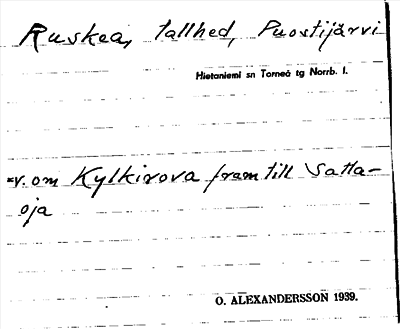 Ruskea, tallhed, Puostijärvi
Hietaniemi sn Torneå tg Norrb. l.
v. om Kylkirova fram till Satta-
oja
O. ALEXANDERSSON 1939.